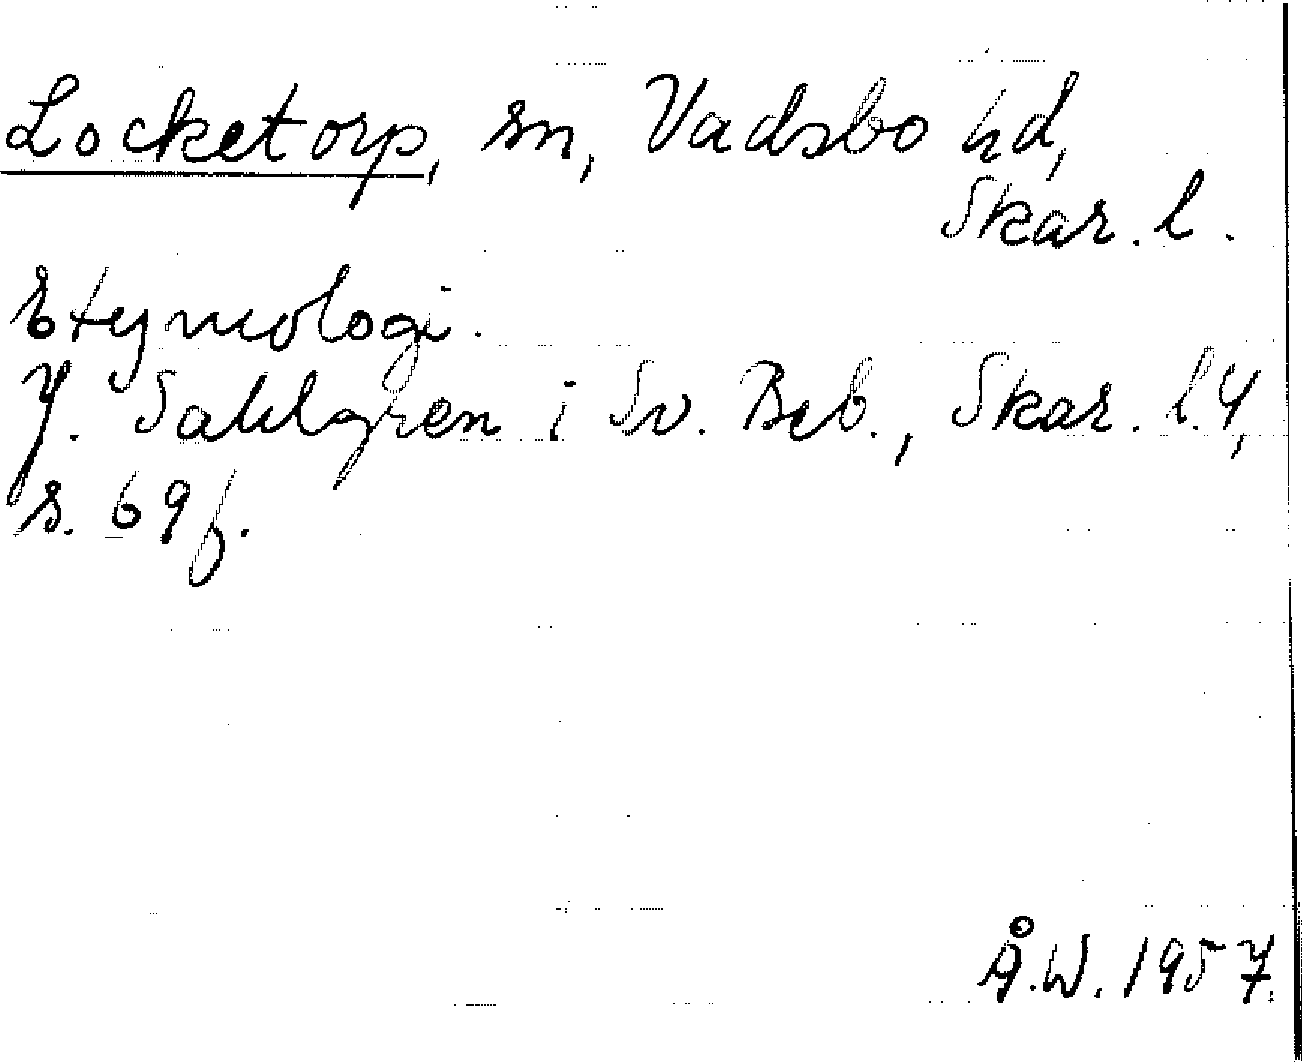 Locketorp, sn, Vadsbo hd,
Skar. l.
Etymologi.
J. Sahlgren i Sv. Beb., Skar. l. 4,
s. 69 f.
Å.W. 1957.